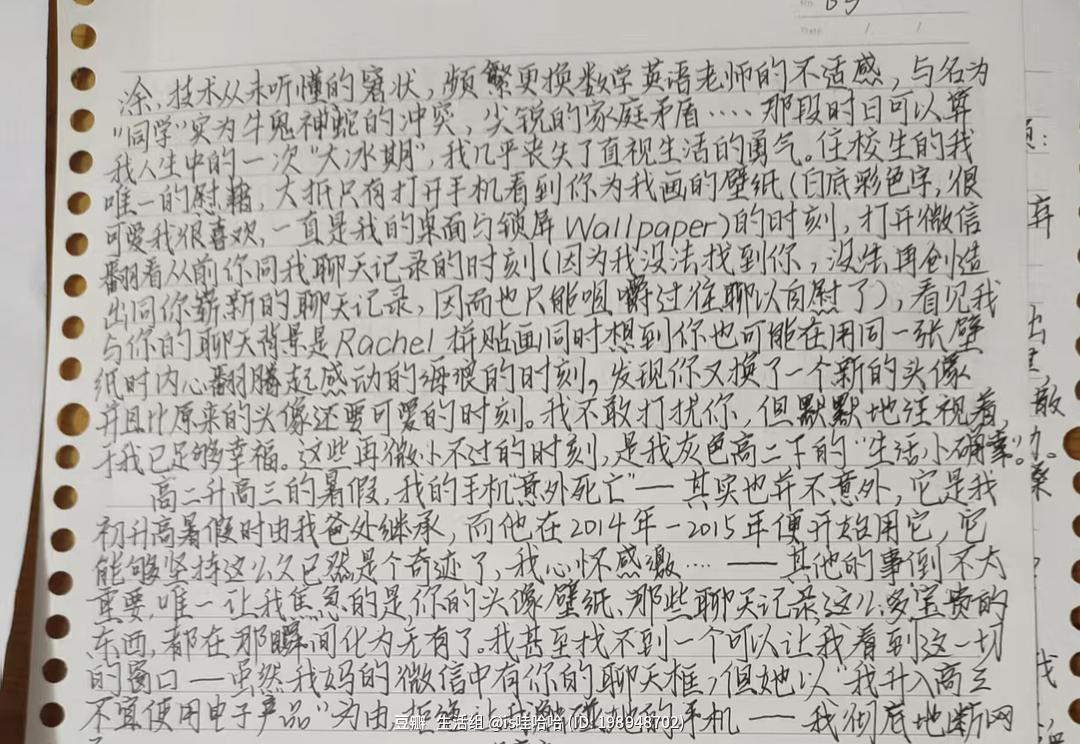 涂,技术从未听懂的窘状,频繁更换数学英语老师的不适感,与名为
"同学"实为牛鬼神蛇的冲突,尖锐的家庭矛盾····那段时日可以算
我人生中的一次"大冰期",我几乎丧失了直视生活的勇气。住校生的我
唯一的慰藉,大抵只有打开手机看到你为我画的壁纸(白底彩色字,很
可爱我很喜欢,一直是我的桌面与锁屏Wallpaper)的时刻,打开微信
翻看从前你同我聊天记录的时刻(因为我没法找到你,没法再创造
出同你崭新的聊天记录,因而也只能咀嚼过往聊以自慰了),看见我
与你的聊天背景是Rachel拼贴画同时想到你也可能在用同一张壁
纸时内心翻腾起感动的海浪的时刻,发现你又换了一个新的头像
并且比原来的头像还要可爱的时刻。我不敢打扰你,但默默地注视着
于我已足够幸福。这些再微小不过的时刻,是我灰色高二下的"生活小确幸"。
高二升高三的暑假,我的手机"意外死亡"——其实也并不意外,它是我
初升高暑假时由我爸处继承,而他在2014年-2015年便开始用它,它
能够坚持这么久已然是个奇迹了,我心怀感激····——其他的事倒不太
重要,唯一让我焦急的是,你的头像、壁纸、那些聊天记录,这么多宝贵的
东西,都在那瞬间化为无有了。我甚至找不到一个可以让我看到这一切
的窗口——虽然我妈的微信中有你的聊天框,但她以"我升入高三
不宜使用电子产品"为由,拒绝让我触碰她的手机——我彻底地断网
豆瓣 生活组 @rs哇哈哈 (ID: 198948702)